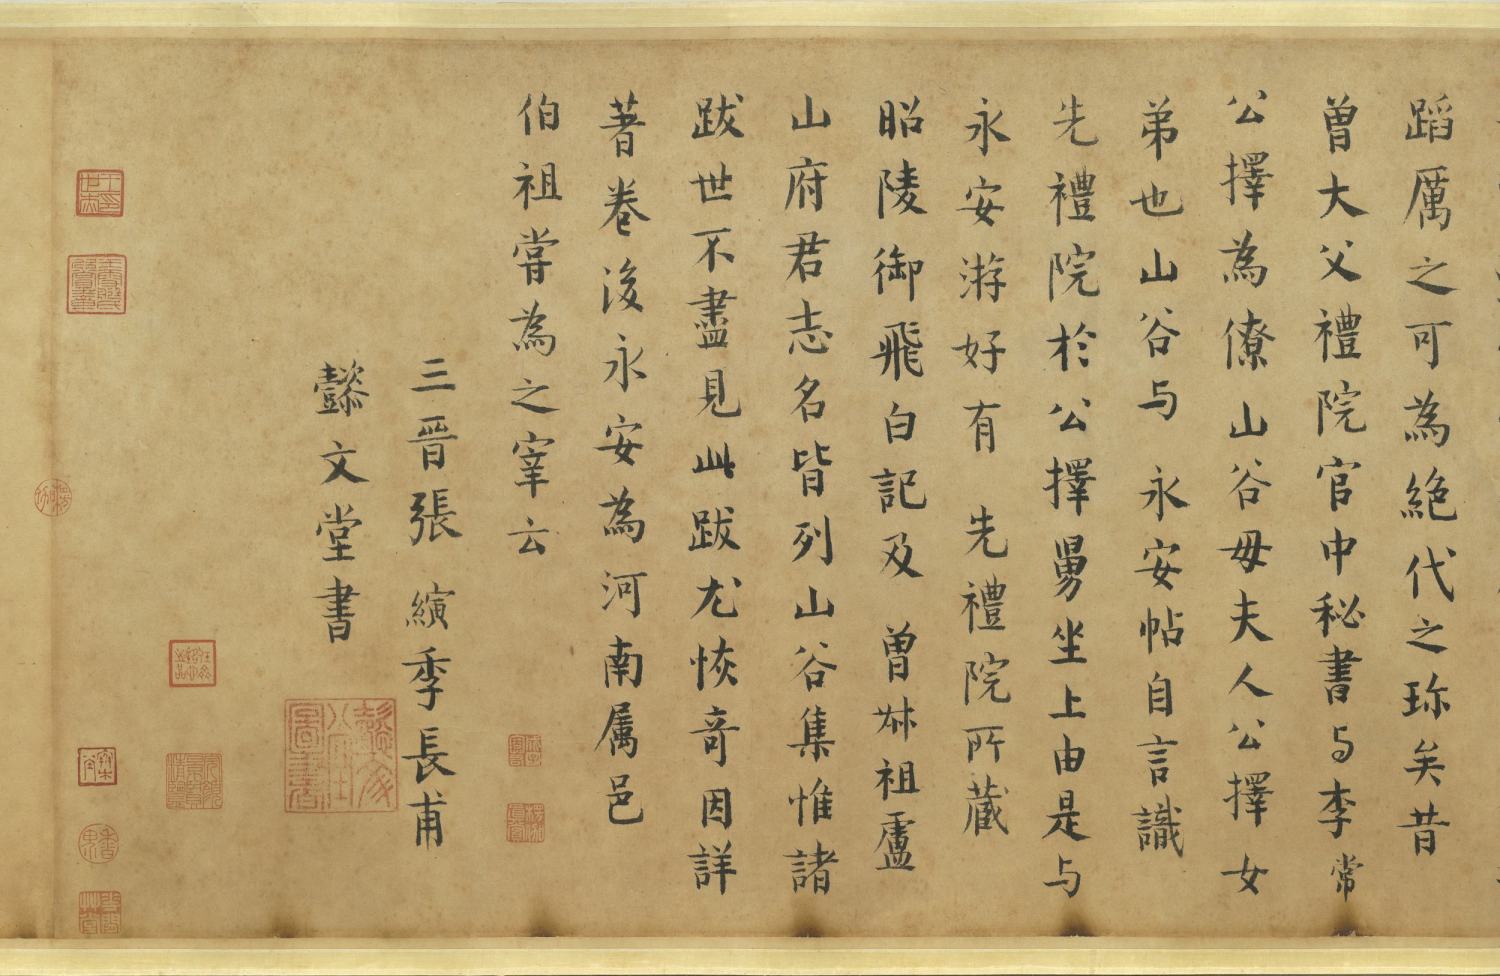 蹈厲之可為絕代之珎矣昔
曾大父禮院官中秘書与李常
公擇為僚山谷母夫人公擇女
弟也山谷与 永安帖自言識
先禮院於公擇舅坐上由是与
永安游好有 先禮院所藏
昭陵御飛白記及 曾叔祖盧
山府君志名皆列山谷集惟諸
跋世不盡見此跋尤恢奇因詳
著卷後永安為河南屬邑
伯祖嘗為之宰云
三晉張 縯季長甫
懿文堂書